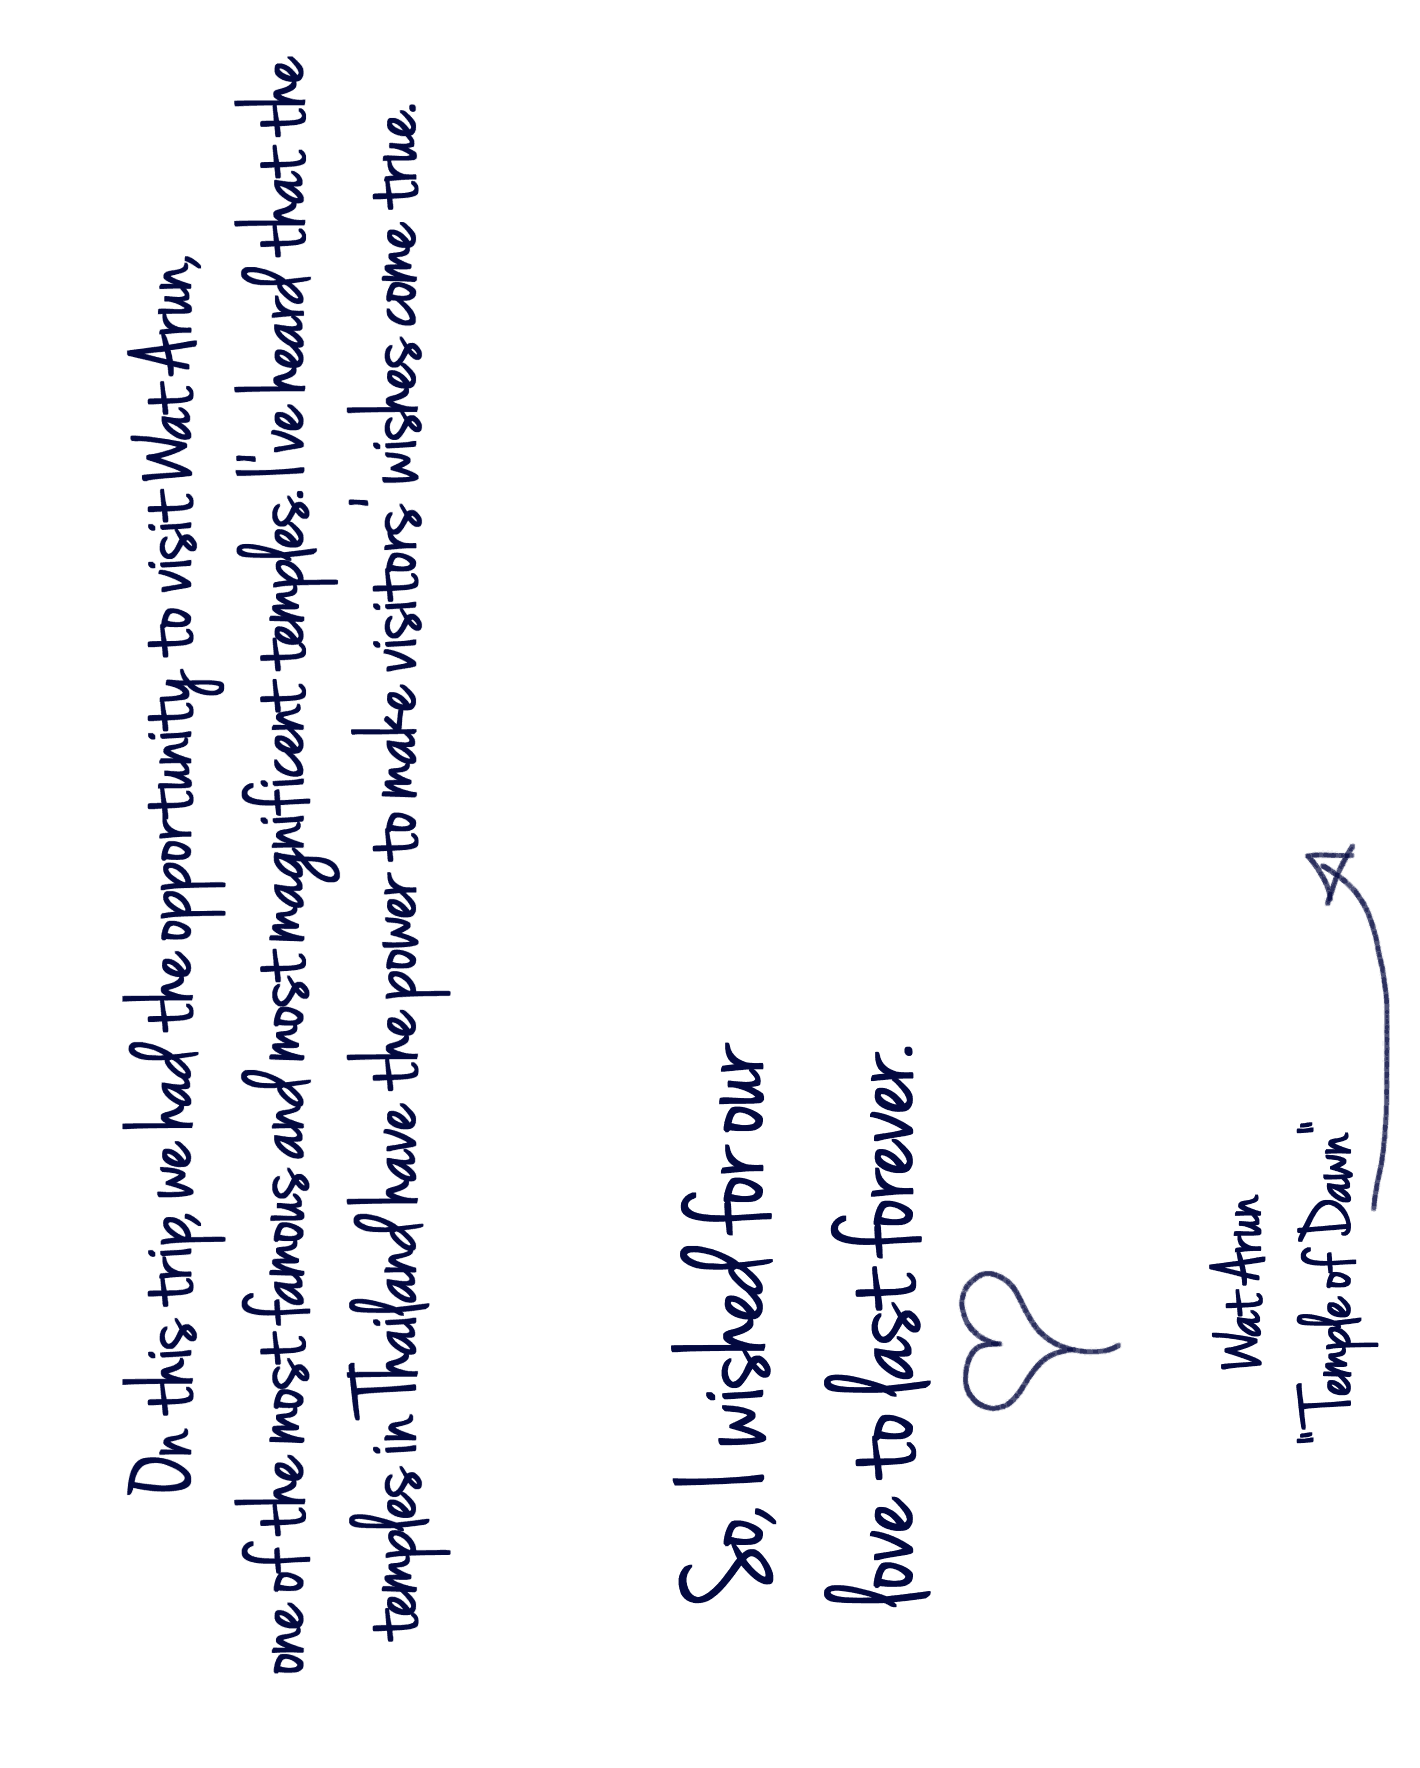 On this trip, we had the opportunity to visit Wat Arun,
one of the most famous and most magnificent temples. I've heard that the
temples in Thailand have the power to make visitors' wishes come true.
So, I wished for our
love to last forever.
Wat Arun
"Temple of Dawn"